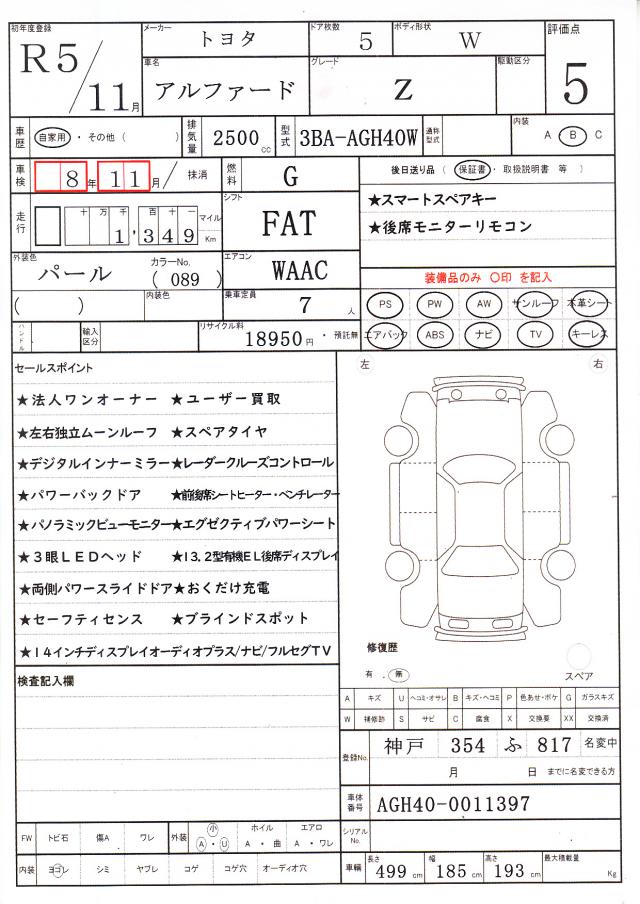 初年度登録 メーカー ドア枚数 ボディ形状 評価点
R5/11月 トヨタ 5 W 5
車名 グレード 駆動区分
アルファード Z
車歴 自家用・その他( ) 排気量 2500cc 型式 3BA-AGH40W 通称型式 内装 A B C
車検 8年11月/抹消 燃料 G 後日送り品(保証書・取扱説明書 等)
走行 十万千百十一 1,349 マイル Km シフト FAT ★スマートスペアキー
★後席モニターリモコン
外装色 パール カラーNo.(089) エアコン WAAC 装備品のみ 〇印 を記入
( ) 内装色 乗車定員 7人 PS PW AW サンルーフ 本革シート
ハンドル 輸入区分 リサイクル料 18950円・預託無 エアバック ABS ナビ TV キーレス
セールスポイント 左 右
★法人ワンオーナー ★ユーザー買取
★左右独立ムーンルーフ ★スペアタイヤ
★デジタルインナーミラー★レーダークルーズコントロール
★パワーバックドア ★前後席シートヒーター・ベンチレーター
★パノラミックビューモニター★エグゼクティブパワーシート
★3眼LEDヘッド ★13.2型有機EL後席ディスプレイ
★両側パワースライドドア★おくだけ充電
★セーフティセンス ★ブラインドスポット
★14インチディスプレイオーディオプラス/ナビ/フルセグTV
修復歴
有.無 スペア
検査記入欄
A キズ U ヘコミ・オサレ B キズ・ヘコミ P 色あせ・ボケ G ガラスキズ
W 補修跡 S サビ C 腐食 X 交換要 XX 交換済
登録No. 神戸 354 ふ 817 名変中
月 日 までに名変できる方
車体番号 AGH40-0011397
FW トビ石 傷A ワレ 外装 小 A・U ホイル A・曲 エアロ A・ワレ シリアルNo.
内装 ヨゴレ シミ ヤブレ コゲ コゲ穴 オーディオ穴 車輌 長さ 499cm 幅 185cm 高さ 193cm 最大積載量 Kg